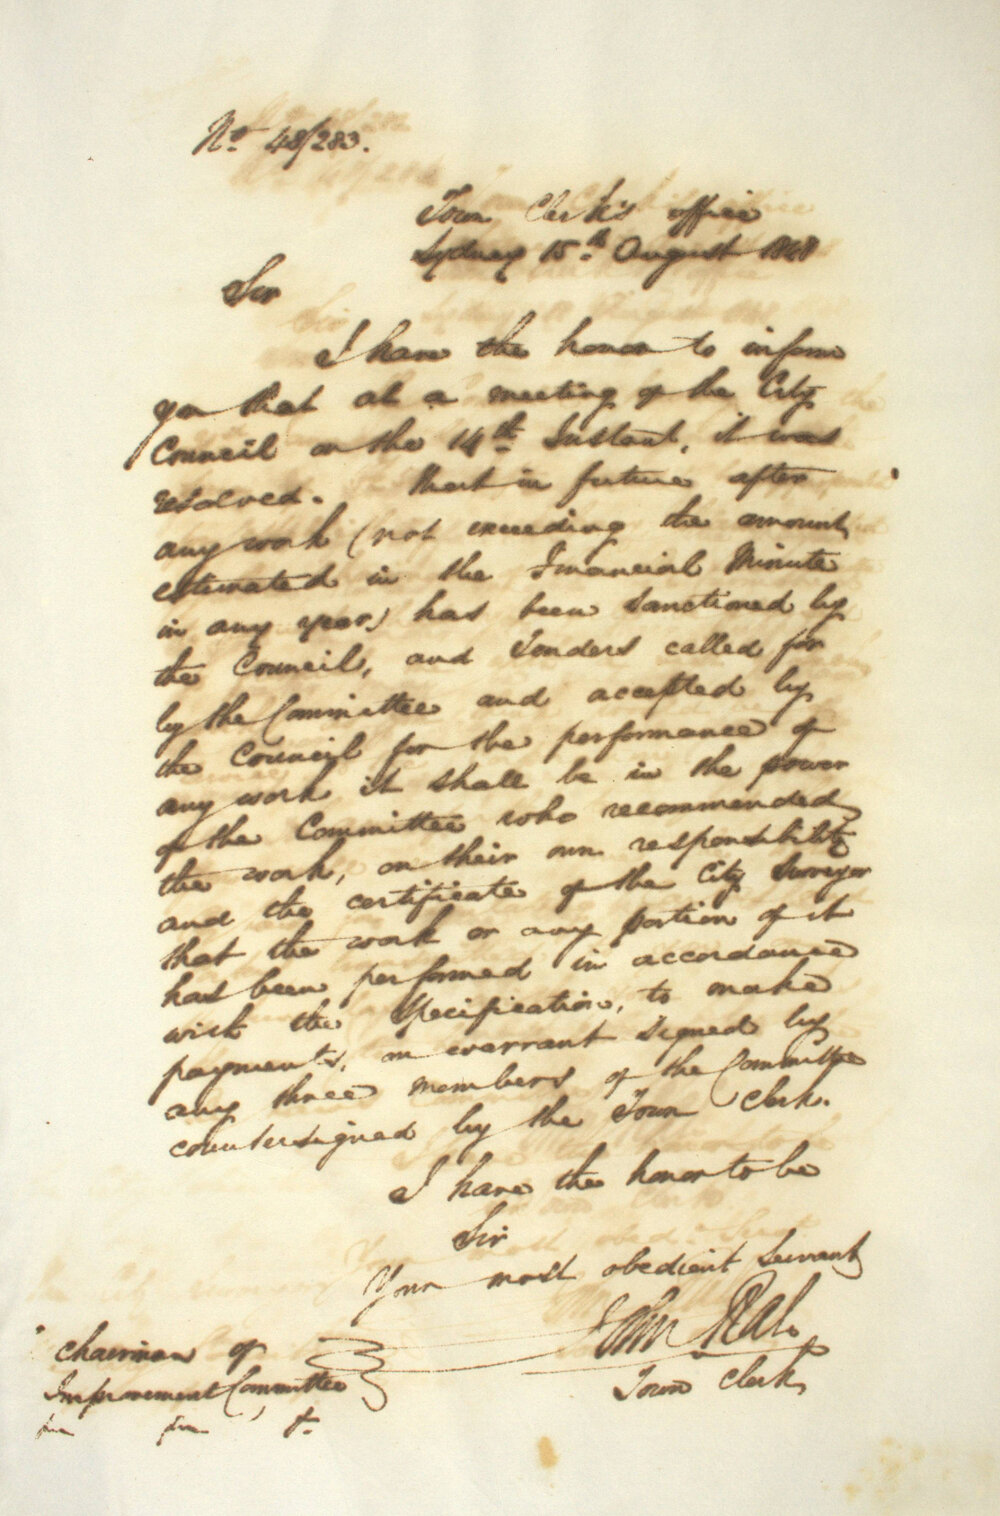 No. 48/283.
Town Clerk's office
Sydney 15th August 1848
Sir
I have the honor to inform
you that at a meeting of the City
Council on the 14th Instant, it was
resolved. That in future after
any work (not exceeding the amount
estimated in the Financial Minute
in any year) has been sanctioned by
the Council, and Tenders called for
by the Committee and accepted by
the Council for the performance of
any work it shall be in the power
of the Committee who recommended
the work, on their own responsibility
and the certificate of the City Surveyor
that the work or any portion of it
has been performed in accordance
with the specification, to make
payments, on warrant signed by
any three members of the Committee
countersigned by the Town Clerk.
I have the honor to be
Sir
Your most obedient Servant
John Rae
Town Clerk
Chairman of
Improvement Committee